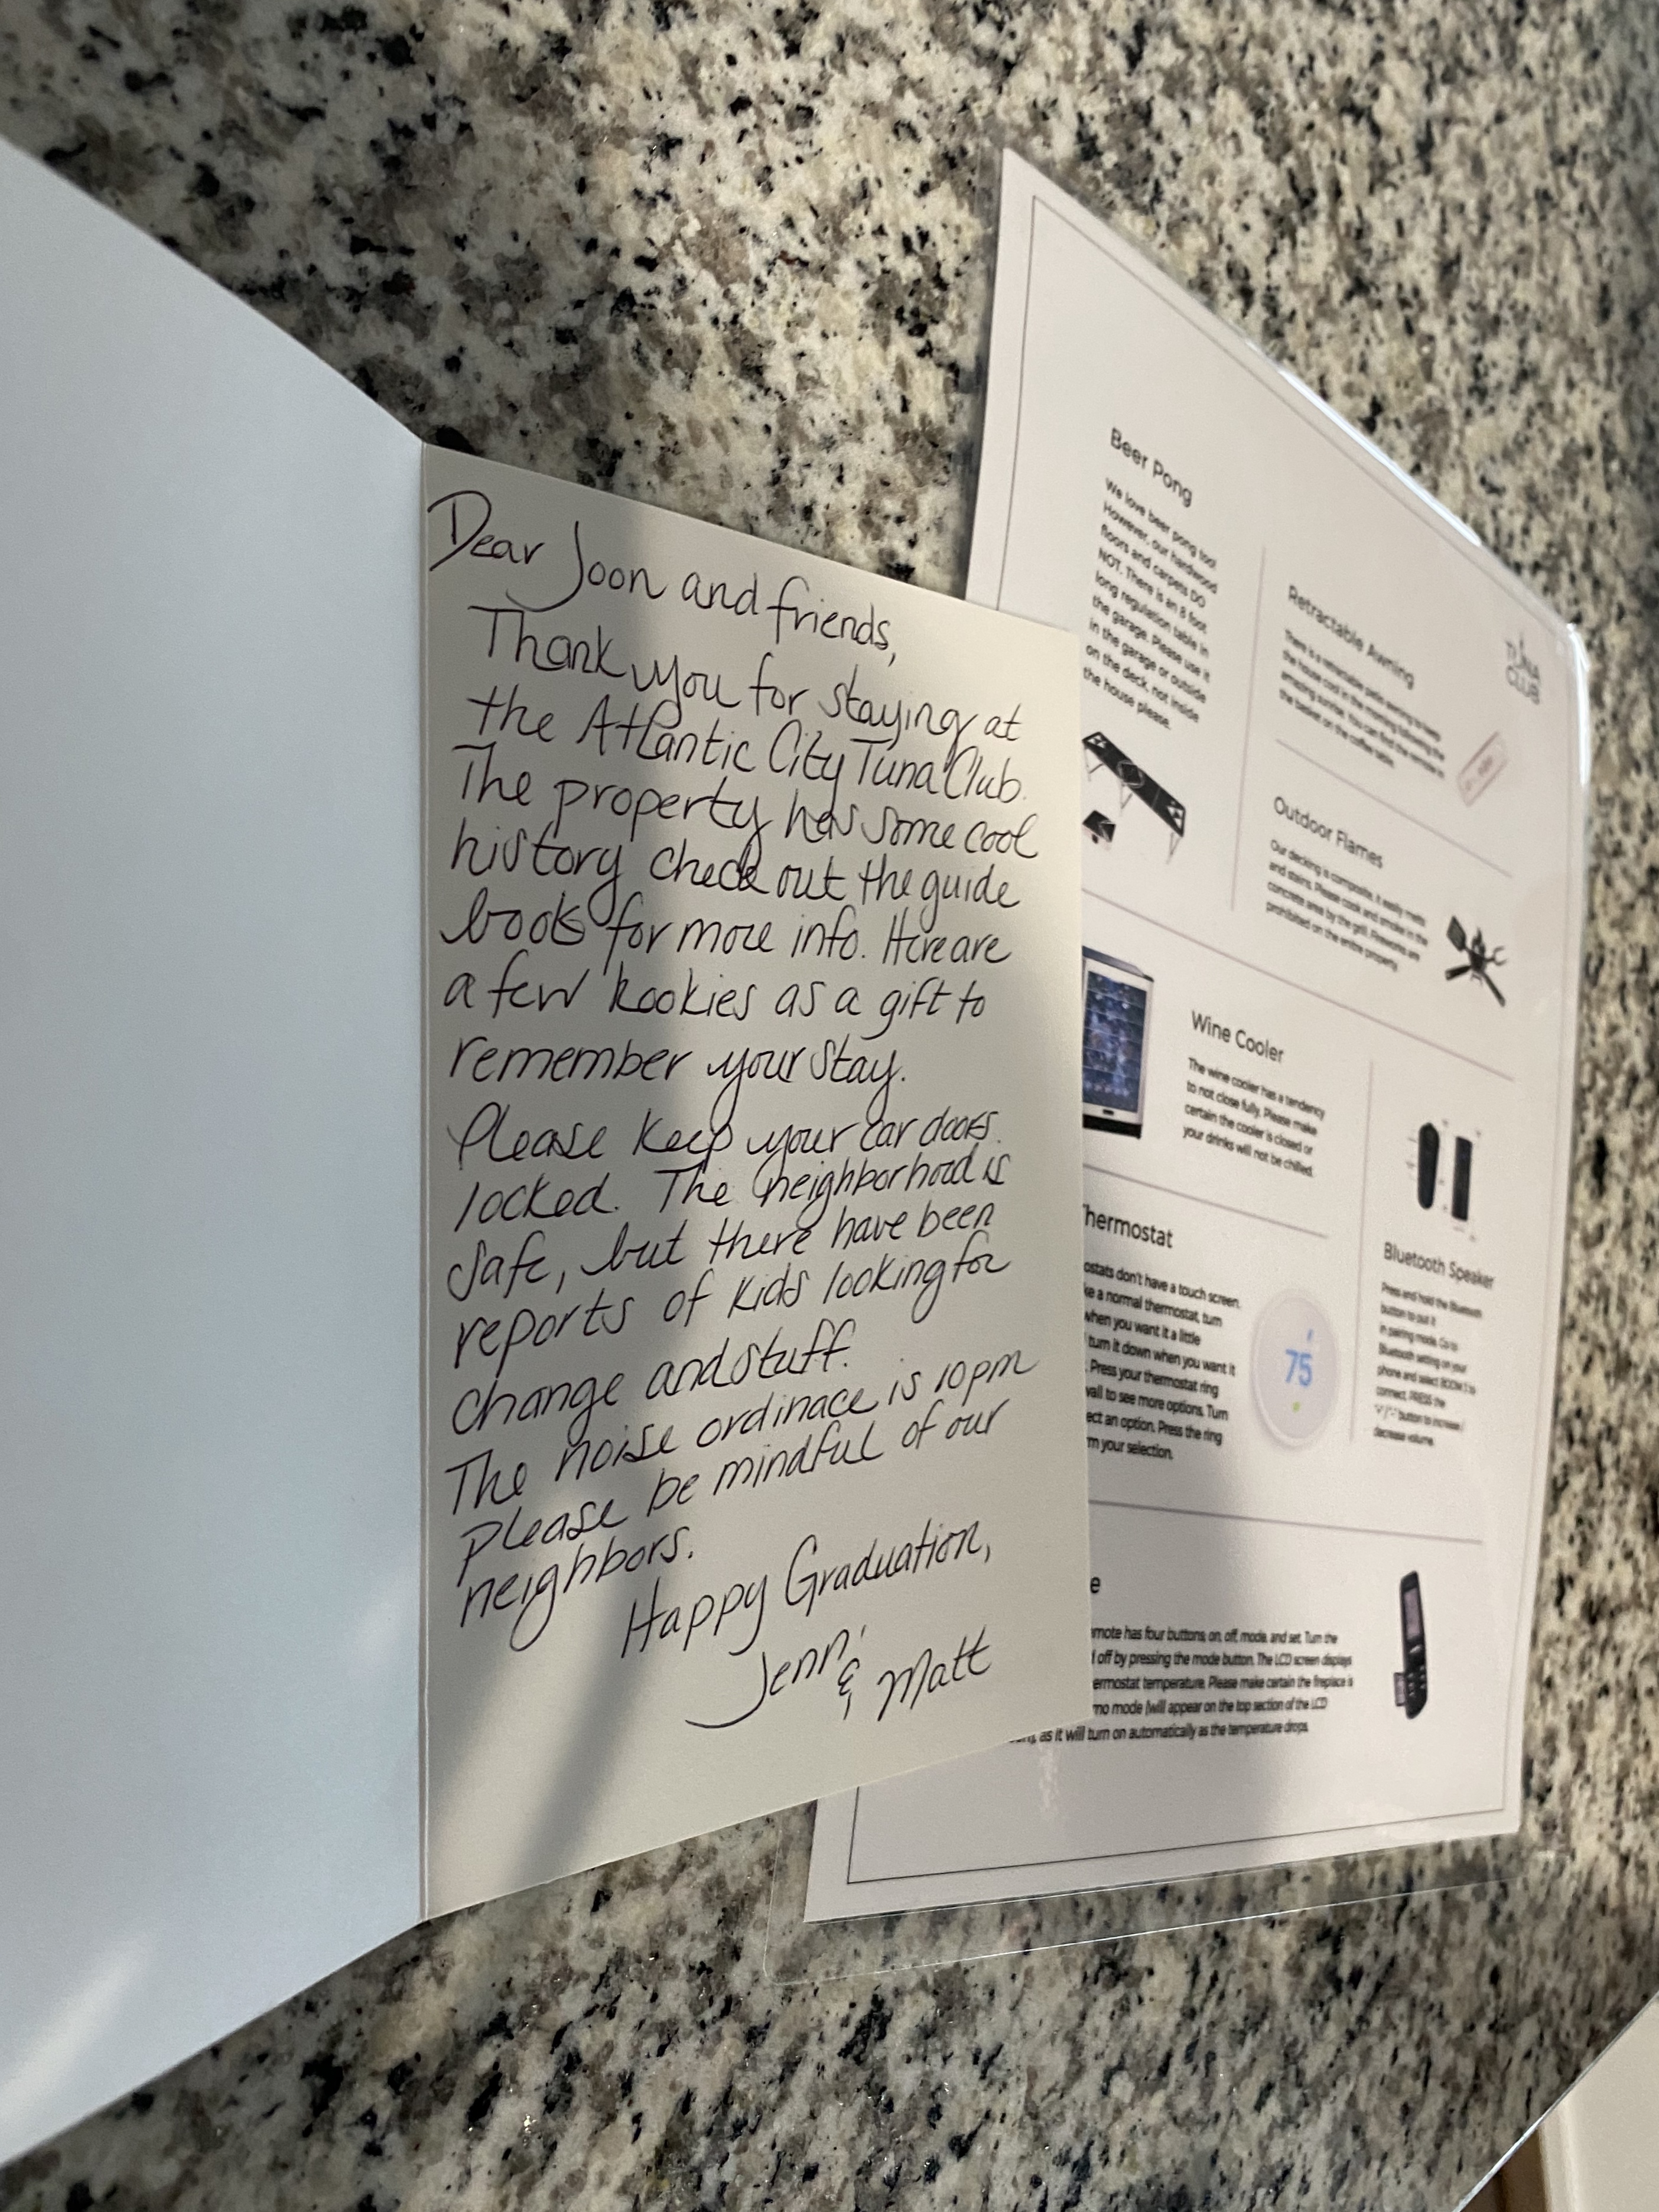 Dear Joon and friends,
Thank you for staying at
the Atlantic City Tuna Club.
The property has some cool
history check out the guide
book for more info. Here are
a few kookies as a gift to
remember your stay.
Please keep your car doors
locked. The neighborhood is
safe, but there have been
reports of kids looking for
change and stuff.
The noise ordinace is 10pm
please be mindful of our
neighbors.
Happy Graduation,
Jenn
& Matt
TUNA
CLUB
Beer Pong
We love beer pong too!
However, our hardwood
floors and carpets DO
NOT. There is an 8 foot
long regulation table in
the garage. Please use it
in the garage or outside
on the deck, not inside
the house please.
Retractable Awning
There is a retractable patio awning to keep
the house cool in the morning following the
amazing sunrise. You can find the remote in
the basket on the coffee table.
Outdoor Flames
Our decking is composite, it easily melts
and stains. Please cook and smoke in the
concrete area by the grill. Fireworks are
prohibited on the entire property.
Wine Cooler
The wine cooler has a tendency
to not close fully. Please make
certain the cooler is closed or
your drinks will not be chilled.
hermostat
ostats don't have a touch screen.
ke a normal thermostat, turn
when you want it a little
turn it down when you want it
. Press your thermostat ring
wall to see more options. Turn
ect an option. Press the ring
rm your selection.
75
Bluetooth Speaker
Press and hold the Bluetooth
button to put it
in pairing mode. Go to
Bluetooth setting on your
phone and select BOOM 3 to
connect. PRESS the
"+"/"-" button to increase /
decrease volume.
e
mote has four buttons, on, off, mode, and set. Turn the
off by pressing the mode button. The LCD screen displays
ermostat temperature. Please make certain the fireplace is
mo mode (will appear on the top section of the LCD
as it will turn on automatically as the temperature drops.